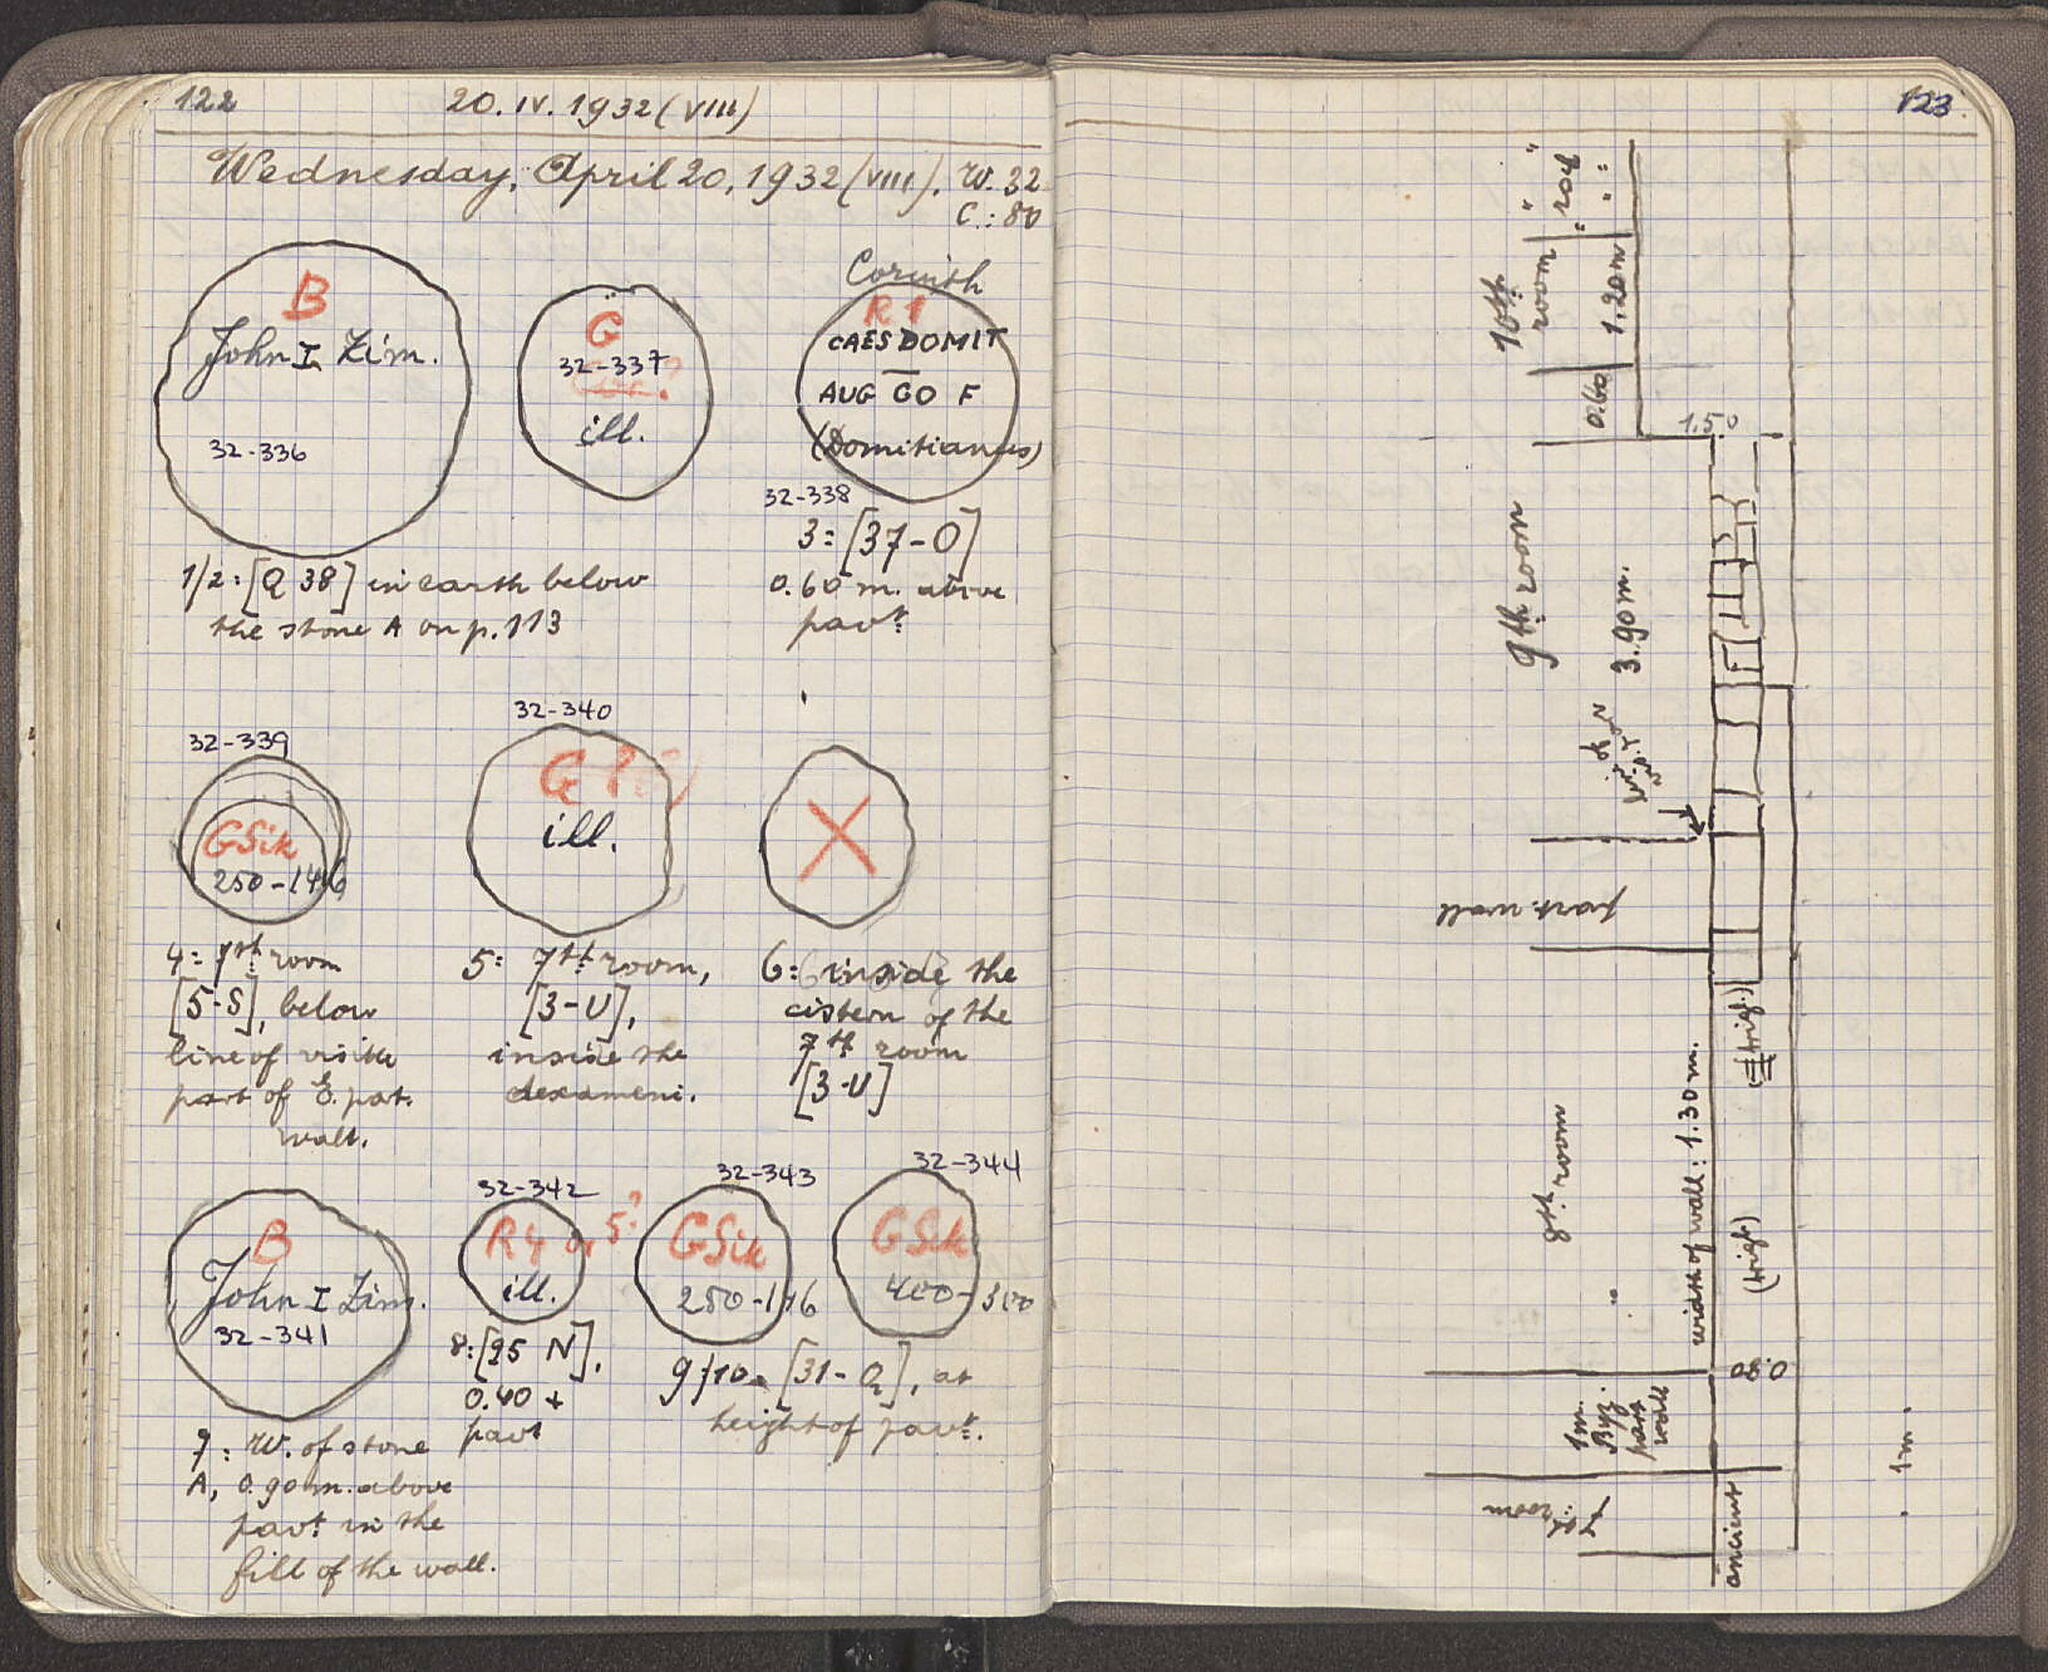 122
20. IV. 1932 (VIII)
Wednesday, April 20, 1932 (VIII). W. 32
C.: 80
B
John I Zim.
32-336
G
32-337
ill.
Corinth
R 1
CAES DOMIT
AUG GO F
(Domitianus)
32-338
1/2: [Q 38] in earth below
the stone A on p. 113
3: [37-O]
0.60 m. above
pavt.
32-339
GSik
250-146
32-340
G
ill.
4: 7th room
[5-S], below
line of visible
part of E. part.
wall.
5: 7th room,
[3-U],
inside the
dexameni.
6: inside the
cistern of the
7th room
[3-U]
B
John I Zim.
32-341
32-342
R4 or 5?
ill.
32-343
GSik
250-146
32-344
GSik
400-300
7: W. of stone
A, 0.90 m. above
pavt. in the
fill of the wall.
8: [25 N],
0.40 +
pavt
9/10: [31-Q], at
height of pavt.
123.
10th room " "
0.60 1.20 m " "
1.50
9th room
3.90 m.
part. wall
8th room
width of wall: 1.30 m.
(trigl.)
(trigl.)
0.80
1 m.
Byz.
part
wall
7th room
ancient
1 m.